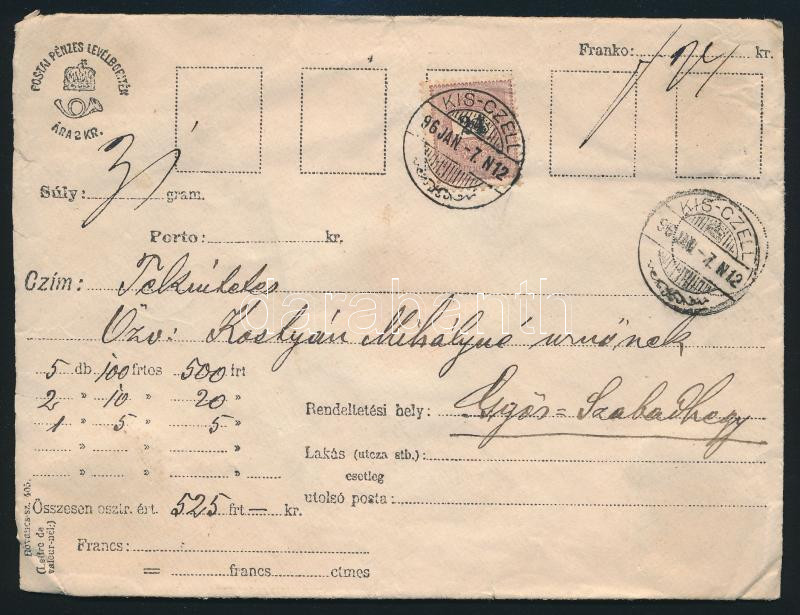 POSTAI PÉNZES LEVÉLBORITÉK
ÁRA 2 KR.
Franko: kr.
KIS-CZELL
96 JAN -7. N12
Súly: 31 gram.
KIS-CZELL
96 JAN -7. N12
Porto: kr.
Czím: Tekintetes
Özv: Kostyán Mihályné urnőnek
5 db 100 frtos 500 frt
2 " 10 " 20 "
1 " 5 " 5 "
" " "
" " "
Rendeltetési hely: Győr=Szabadhegy
Lakás (utcza stb.):
esetleg
utolsó posta:
Összesen osztr. ért. 525 frt — kr.
Francs:
= francs ctmes
Rovancs-sz. 405.
(Lettre de
valeur-nél:)
darabanth